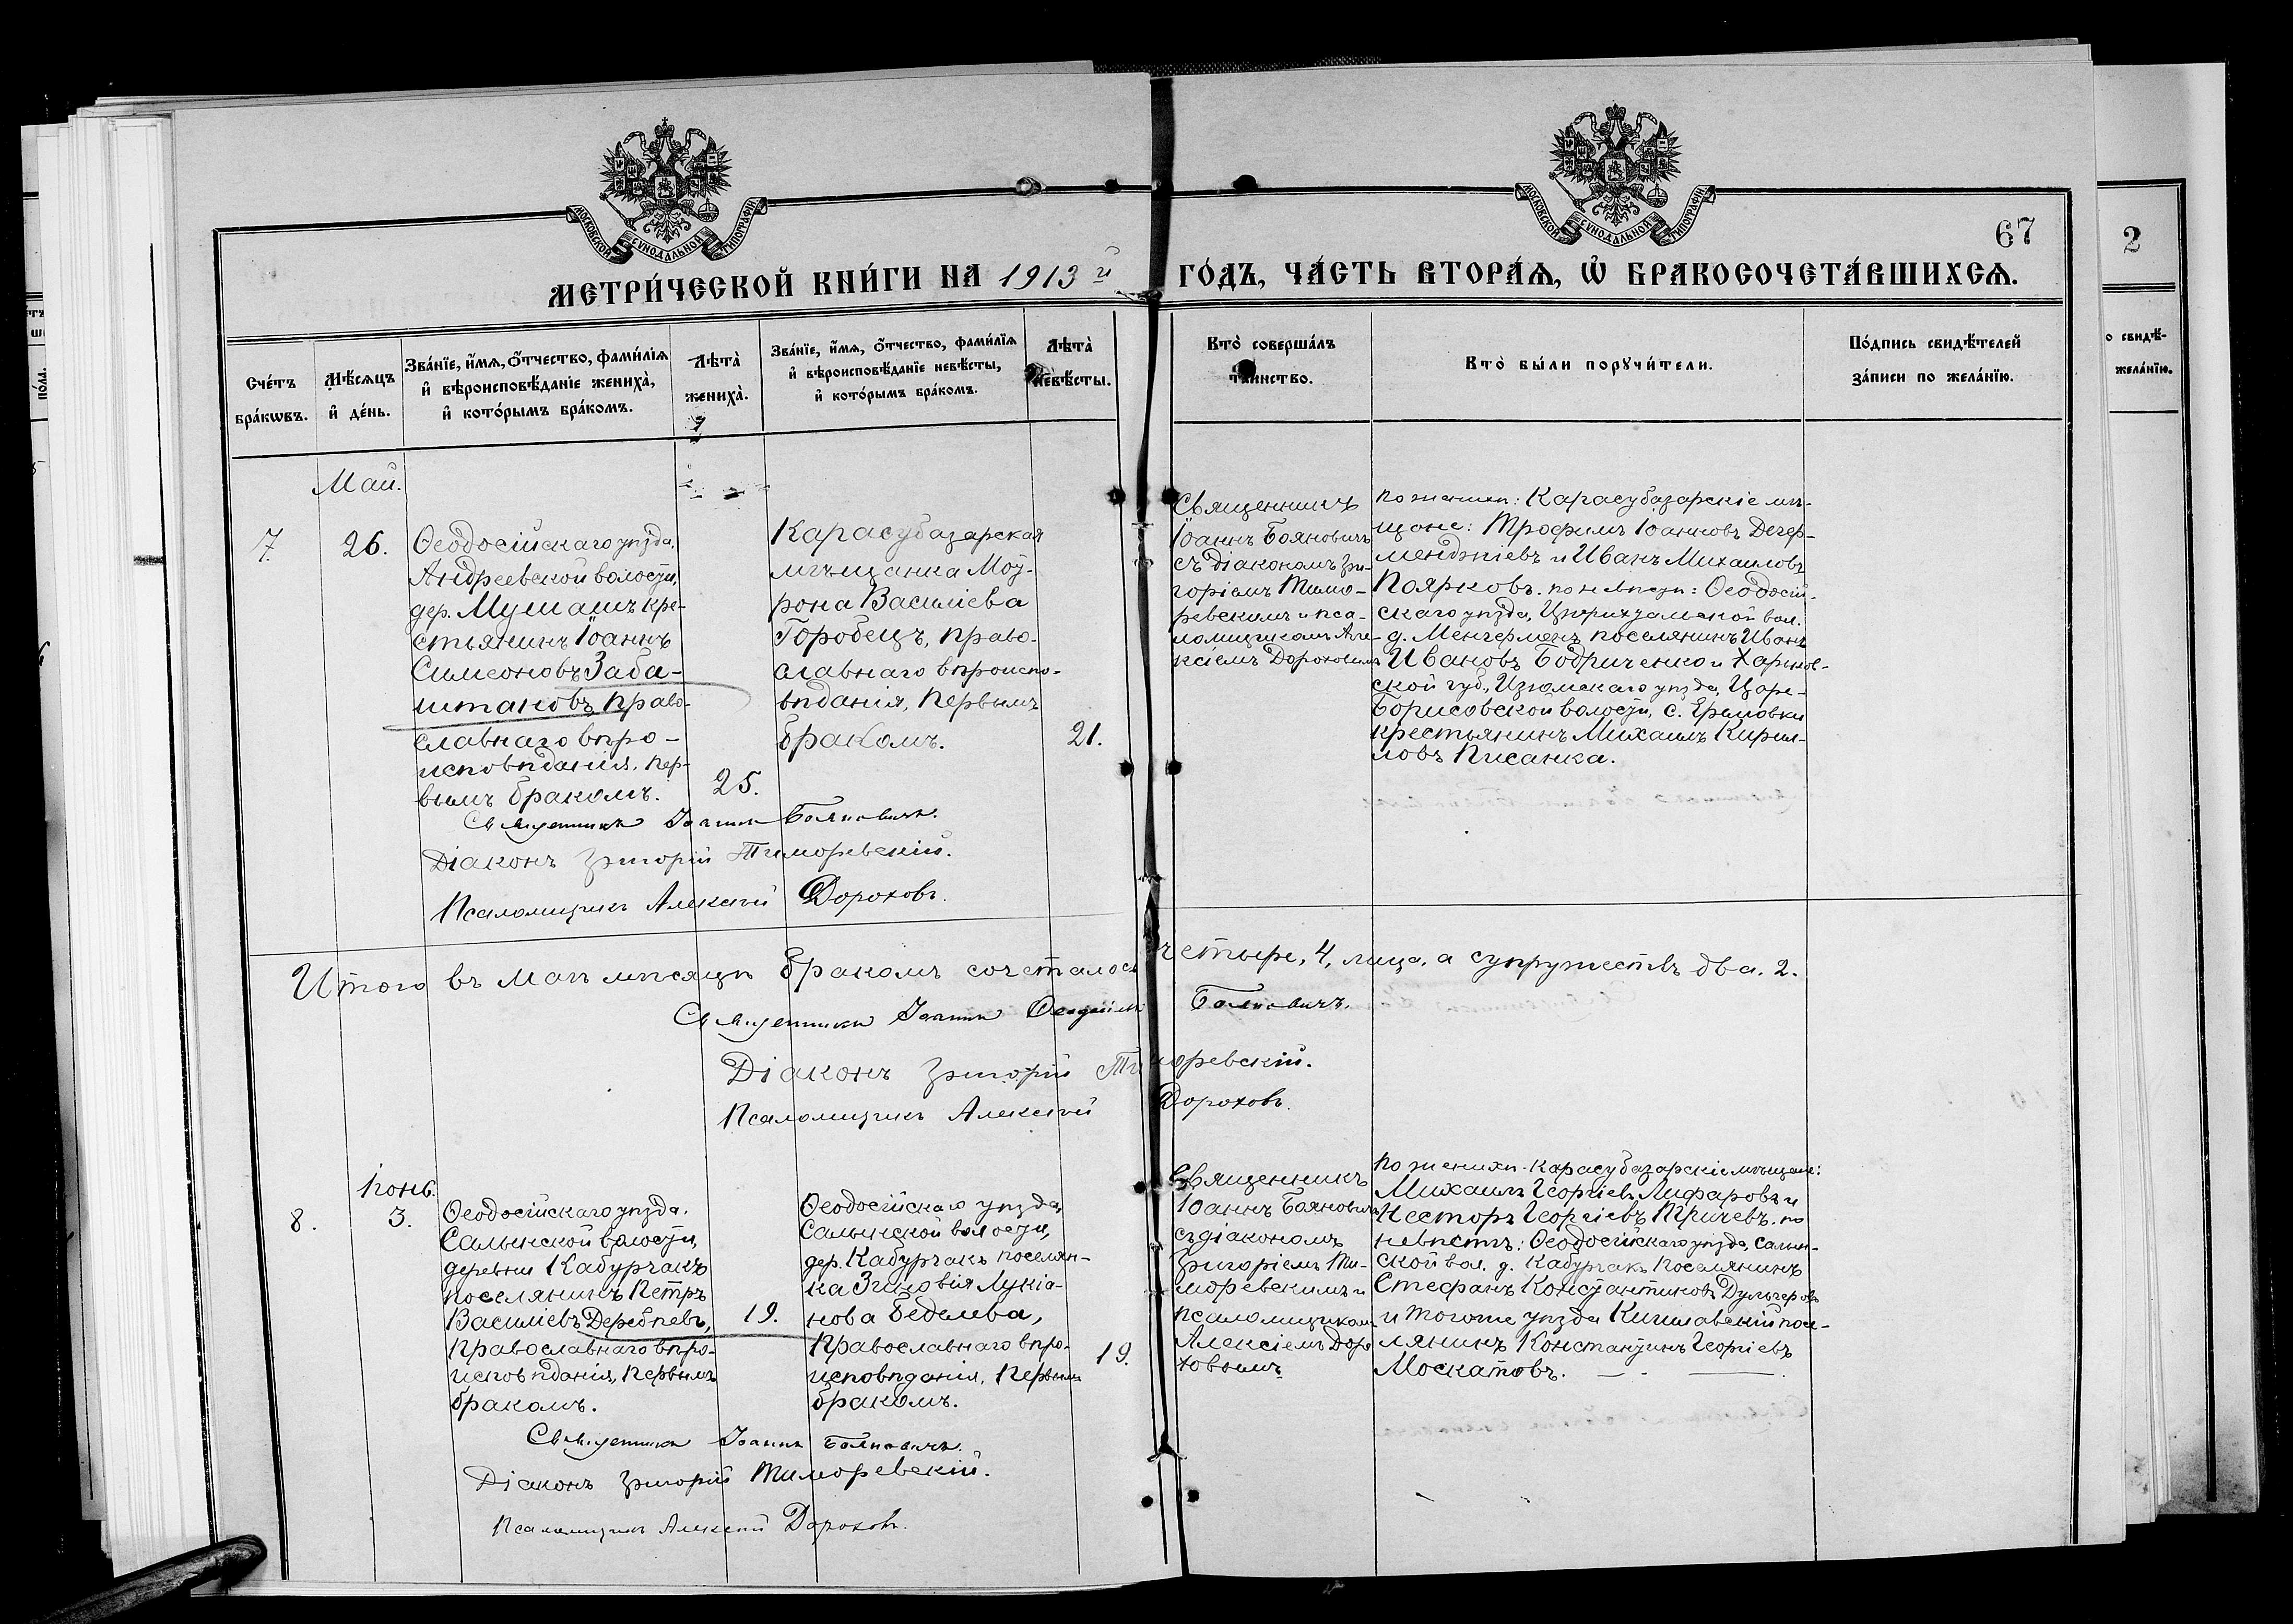 МОСКОВСКОЙ СѴНОДАЛЬНОЙ ТИПОГРАФІИ
МОСКОВСКОЙ СѴНОДАЛЬНОЙ ТИПОГРАФІИ
67
2
МЕТРИ́ЧЕСКОЙ КНИ́ГИ НА 1913 й ГО́ДЪ, ЧА́СТЬ ВТОРА́Ѧ, Ѡ҆ БРАКОСОЧЕТА́ВШИХСѦ.
Сче́тъ
бра́кѡвъ.
Мѣ́сѧцъ
и҆ де́нь.
Зва́нїе, и҆́мѧ, ѻ҆́тчество, фами́лїѧ
и҆ вѣроисповѣ́данїе жениха̀,
и҆ кото́рымъ бра́комъ.
Лѣта̀
жениха̀.
Зва́нїе, и҆́мѧ, ѻ҆́тчество, фами́лїѧ
и҆ вѣроисповѣ́данїе невѣ́сты,
и҆ кото́рымъ бра́комъ.
Лѣта̀
невѣ́сты.
Кто̀ соверша́лъ
та́инство.
Кто̀ бы́ли порꙋчи́тели.
По́дпись свидѣ́телей
за́писи по жела́нїю.
о свидѣ́-
жела́нїю.
Май.
7.
26.
Ѳеодосійскаго уѣзда,
Андреевской волости,
дер. Мушашъ кре-
стьянинъ Іоаннъ
Симеоновъ Заба-
штановъ, право-
славнаго вѣро-
исповѣданія, пер-
вымъ бракомъ.
25.
Карасубазарская
мѣщанка Моѵ-
рона Василіева
Горобецъ, право-
славнаго вѣроиспо-
вѣданія, первымъ
бракомъ.
21.
Священникъ
Іоаннъ Бояновичъ
съ діакономъ Гри-
горіемъ Тимо-
ревскимъ и пса-
ломщикомъ Але-
ксіемъ Дороховымъ
по женихѣ: Карасубазарскіе мѣ-
щане: Трофимъ Іоанновъ Дегер-
менджіевъ и Иванъ Михаиловъ
Поярковъ. по невѣстѣ: Ѳеодосій-
скаго уѣзда, Цюрихтальской вол.
д. Менгерменъ поселянинъ Иванъ
Ивановъ Бодриченко и Харьков-
ской губ., Изюмскаго уѣзда, Царе-
Борисовской волости, с. Еремовки
крестьянинъ Михаилъ Кирил-
ловъ Писанка.
Священникъ Іоаннъ Бояновичъ.
Діаконъ Григорій Тиморевскій.
Псаломщикъ Алексѣй Дороховъ.
Итого въ маѣ мѣсяцѣ бракомъ сочеталось четыре, 4, лица, а супружествъ два. 2.
Священникъ Іоаннъ Бояновичъ.
Діаконъ Григорій Тиморевскій.
Псаломщикъ Алексѣй Дороховъ.
Іюнь.
8.
3.
Ѳеодосійскаго уѣзда,
Салынской волости,
деревни Кабурчакъ
поселянинъ Петръ
Василіевъ Деребѣевъ,
православнаго вѣро-
исповѣданія, первымъ
бракомъ.
19.
Ѳеодосійскаго уѣзда
Салынской волости,
дер. Кабурчакъ поселян-
ка Зиновія Лукіа-
нова Беделева,
православнаго вѣро-
исповѣданія, первымъ
бракомъ.
19.
Священникъ
Іоаннъ Бояновичъ
съ діакономъ
Григоріемъ Ти-
моревскимъ и
псаломщикомъ
Алексіемъ Доро-
ховымъ.
по женихѣ: Карасубазарскіе мѣщане:
Михаилъ Георгіевъ Лифаровъ и
Несторъ Георгіевъ Тричевъ. по
невѣстѣ: Ѳеодосійскаго уѣзда, Салын-
ской вол. д. Кабурчакъ поселянинъ
Стефанъ Константиновъ Дульгеровъ
и того же уѣзда Кишлавскій посе-
лянинъ Константинъ Георгіевъ
Москатовъ.
Священникъ Іоаннъ Бояновичъ.
Діаконъ Григорій Тиморевскій.
Псаломщикъ Алексѣй Дороховъ.